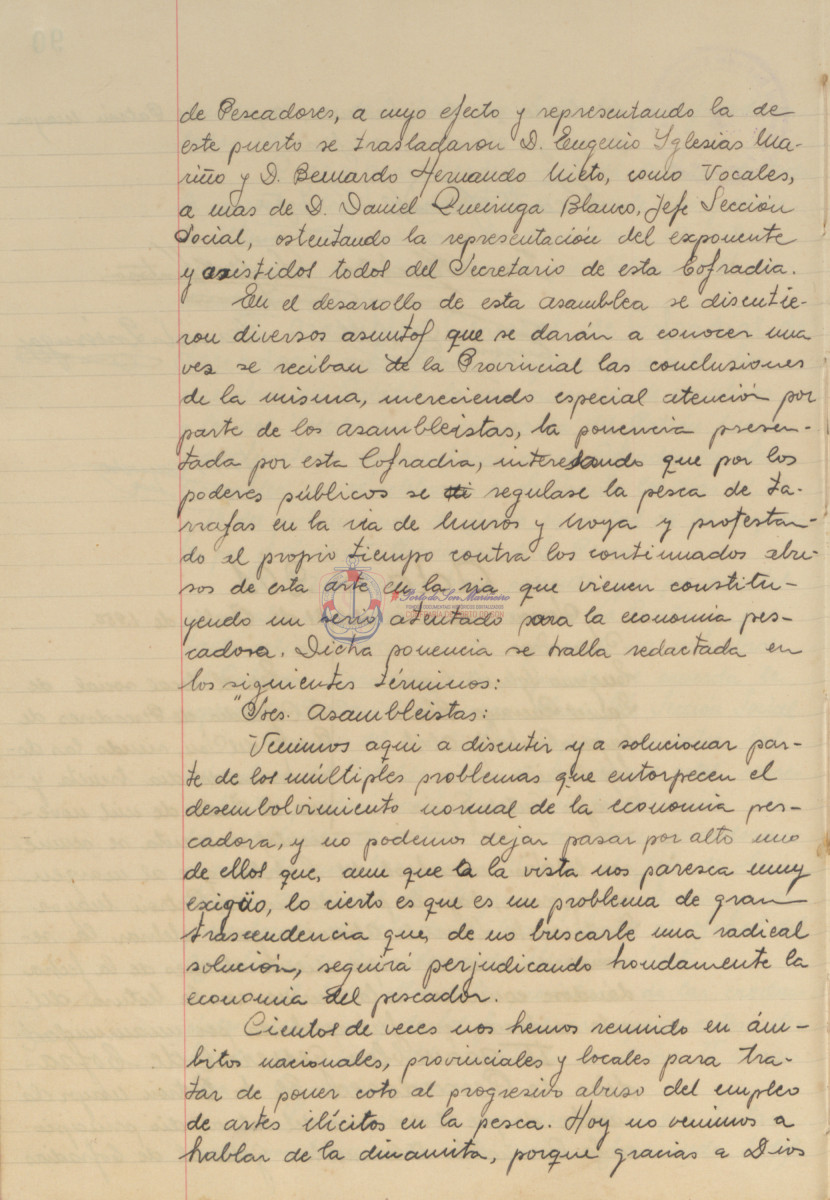 de Pescadores, a cuyo efecto y representando la de
este puerto se trasladaron D. Eugenio Yglesias Ma-
riño y D. Bernardo Hernando Nieto, como Vocales,
a mas de D. Daniel Queiruga Blanco, Jefe Sección
Social, ostentando la representación del exponente
y asistidos todos del Secretario de esta Cofradia.
En el desarrollo de esta asamblea se discutie-
ron diversos asuntos que se darán a conocer una
vez se reciban de la Provincial las conclusiones
de la misma, mereciendo especial atención por
parte de los asambleistas, la ponencia presen-
tada por esta Cofradia, interesando que por los
poderes públicos se regulase la pesca de ta-
rrafas en la ria de Muros y Noya y protestan-
do al propio tiempo contra los continuados abu-
sos de esta arte en la ria que vienen constitu-
yendo un serio atentado para la economia pes-
cadora. Dicha ponencia se halla redactada en
los siguientes términos:
"Sres. Asambleistas:
Venimos aqui a discutir y a solucionar par-
te de los múltiples problemas que entorpecen el
desembolvimiento normal de la economia pes-
cadora, y no podemos dejar pasar por alto uno
de ellos que, aun que a la vista nos paresca muy
exigüo, lo cierto es que es un problema de gran
trascendencia que, de no buscarle una radical
solución, seguirá perjudicando hondamente la
economia del pescador.
Cientos de veces nos hemos reunido en ám-
bitos nacionales, provinciales y locales para tra-
tar de poner coto al progresivo abuso del empleo
de artes ilícitos en la pesca. Hoy no venimos a
hablar de la dinamita, porque gracias a Dios
Porto de Son Marineiro